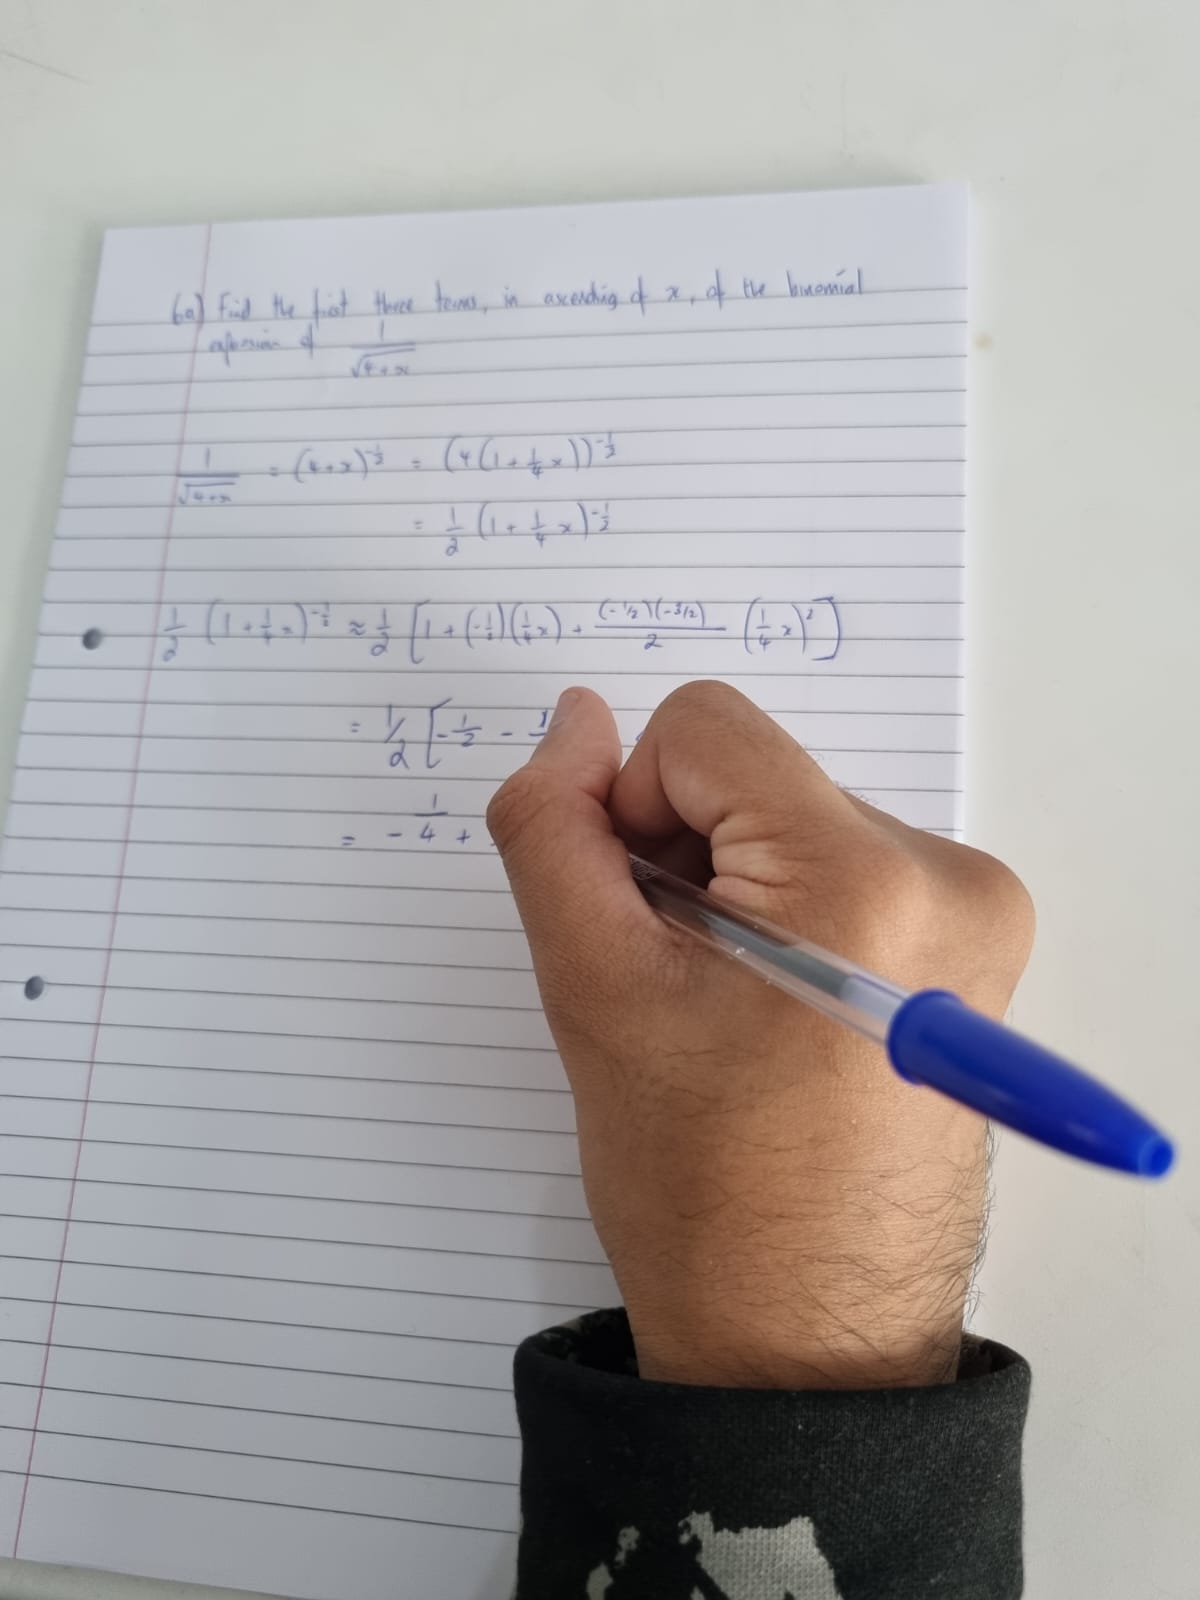 6a) Find the first three terms, in ascending of x, of the binomial
expansion of 1/√(4+x)
1/√(4+x) = (4+x)^(-1/2) = (4(1+1/4 x))^(-1/2)
= 1/2 (1+1/4 x)^(-1/2)
1/2 (1+1/4 x)^(-1/2) ≈ 1/2 [1+(-1/2)(1/4 x)+ (-1/2)(-3/2)/2 (1/4 x)²]
= 1/2 [-1/2 - 1
= - 1/4 +